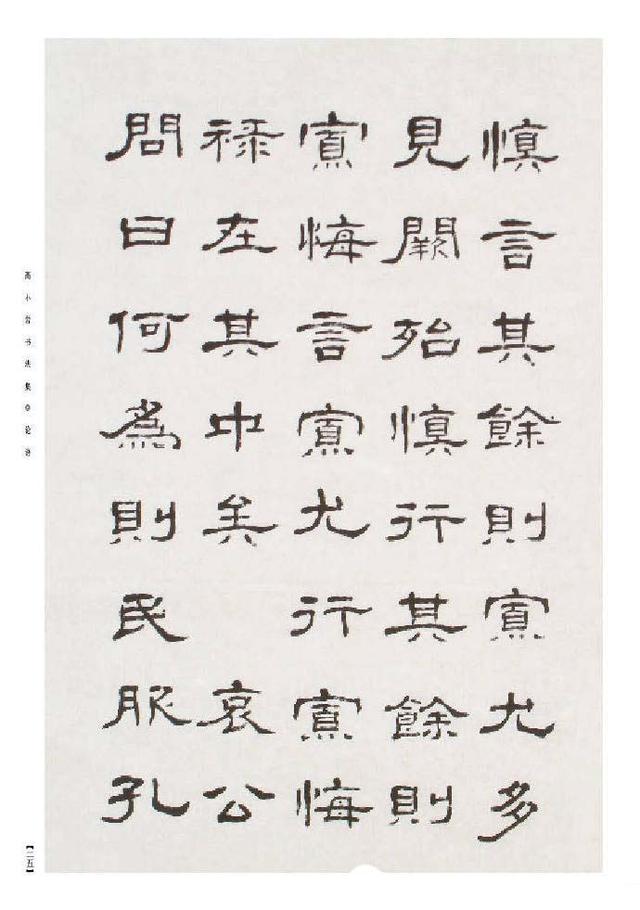 慎言其餘則寡尤多
見闕殆慎行其餘則
寡悔言寡尤行寡悔
禄在其中矣 哀公
問曰何為則民服孔
高小岩书法集中论语
【二五】